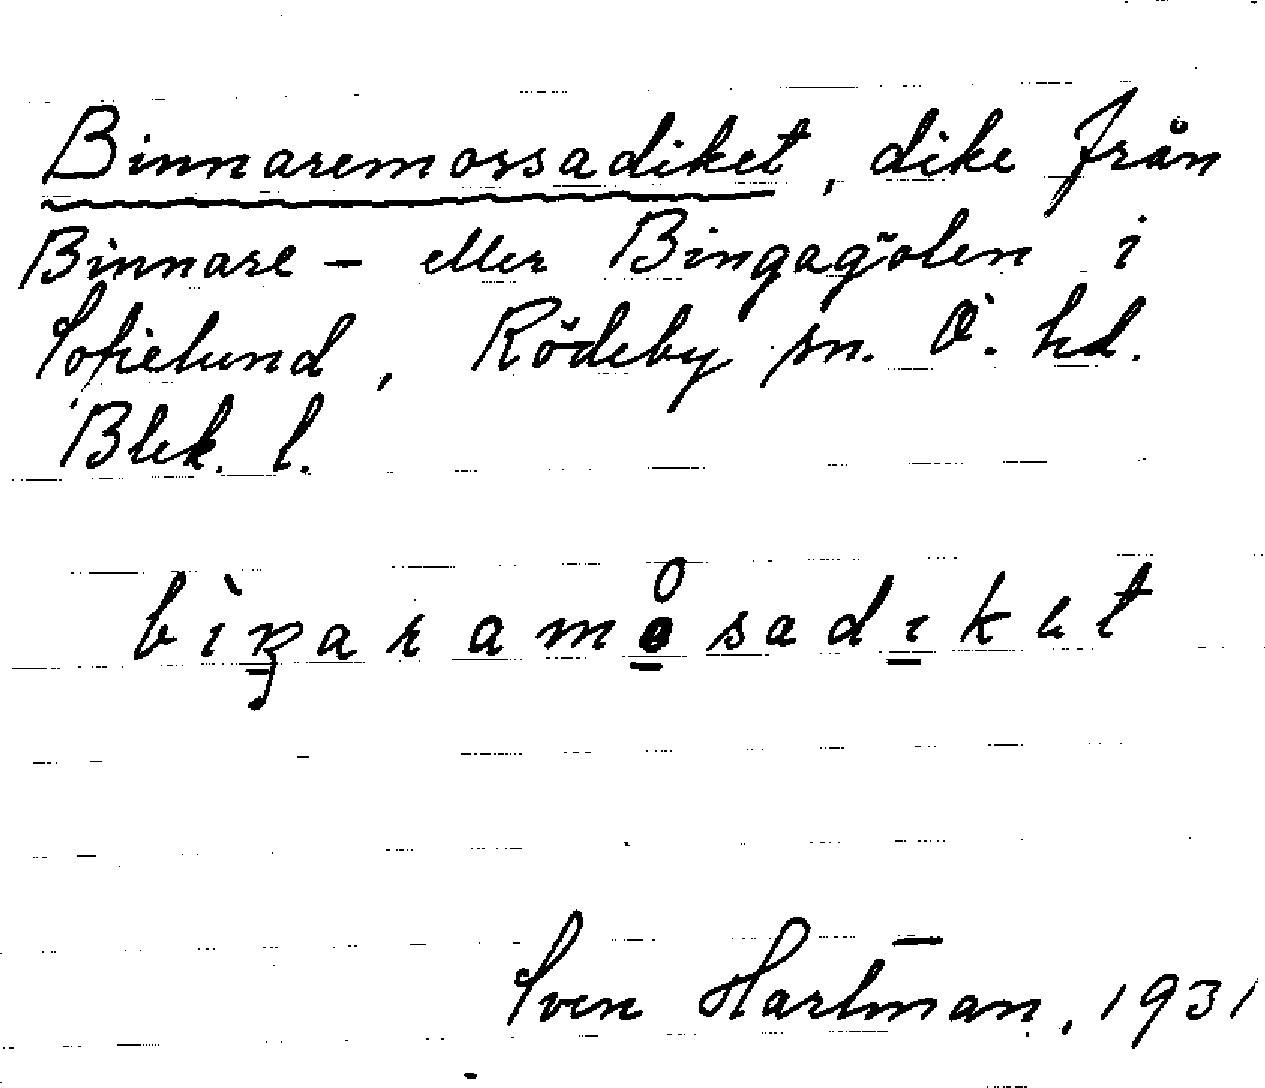 Binnaremossadiket, dike från
Binnare – eller Bingagölen i
Sofielund, Rödeby sn. Ö. hd.
Blek. l.
Sven Hartman, 1931